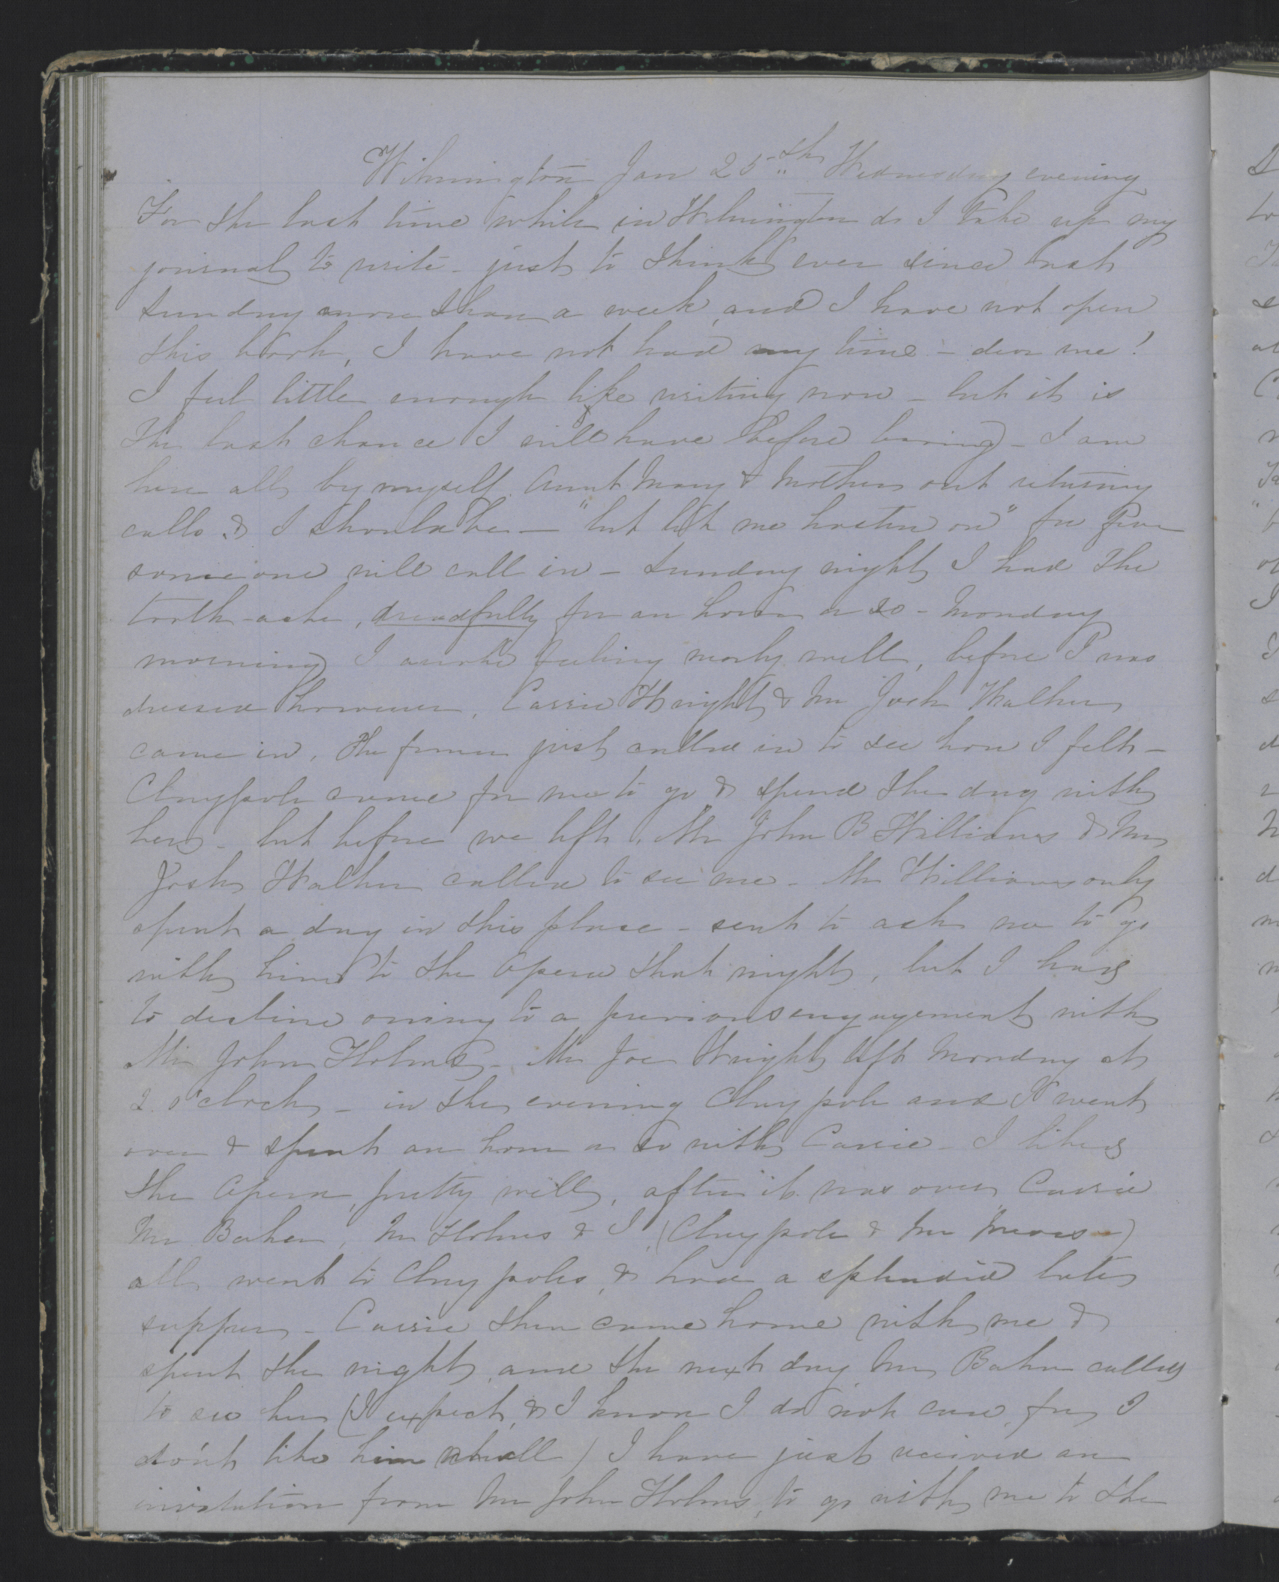 Wilmington Jan 25th Wednesday evening
For the last time while in Wilmington do I take up my
journal to write - just to think ever since last
Sunday more than a week, and I have not open
this book, I have not had any time - dear me!
I feel little enough like writing now - but it is
the last chance I will have before leaving - I am
here all by myself Aunt Mary & Mother out returning
calls & I should be - "but let me hasten on" for fear
someone will call in - Sunday night I had the
tooth-ache, dreadfully for an hour or so - Monday
morning I awoke feeling nearly well, before I was
dressed however, Cassie Wright & Mr Josh Walker
came in, the former just called in to see how I felt -
Claypole came for me to go & spend the day with
her - but before we left, Mr John B Williams & Mr
Josh Walker called to see me - Mr Williams only
spent a day in this place - sent to ask me to go
with him to the Opera that night, but I had
to decline owing to a previous engagement with
Mr John Holmes - Mr Joe Wright left Monday at
2 o'clock - in the evening Claypole and I went
over & spent an hour or so with Cassie - I liked
the Opera pretty well, after it was over Cassie
Mr Baker, Mr Holmes & I, (Claypole & Mr Meares)
all went to Claypoles, & had a splendid late
supper - Cassie then came home with me &
spent the night, and the next day Mr Baker called
to see her (I expect, & I know I do not care, for I
don't like him at all) I have just received an
invitation from Mr John Holmes, to go with me to the